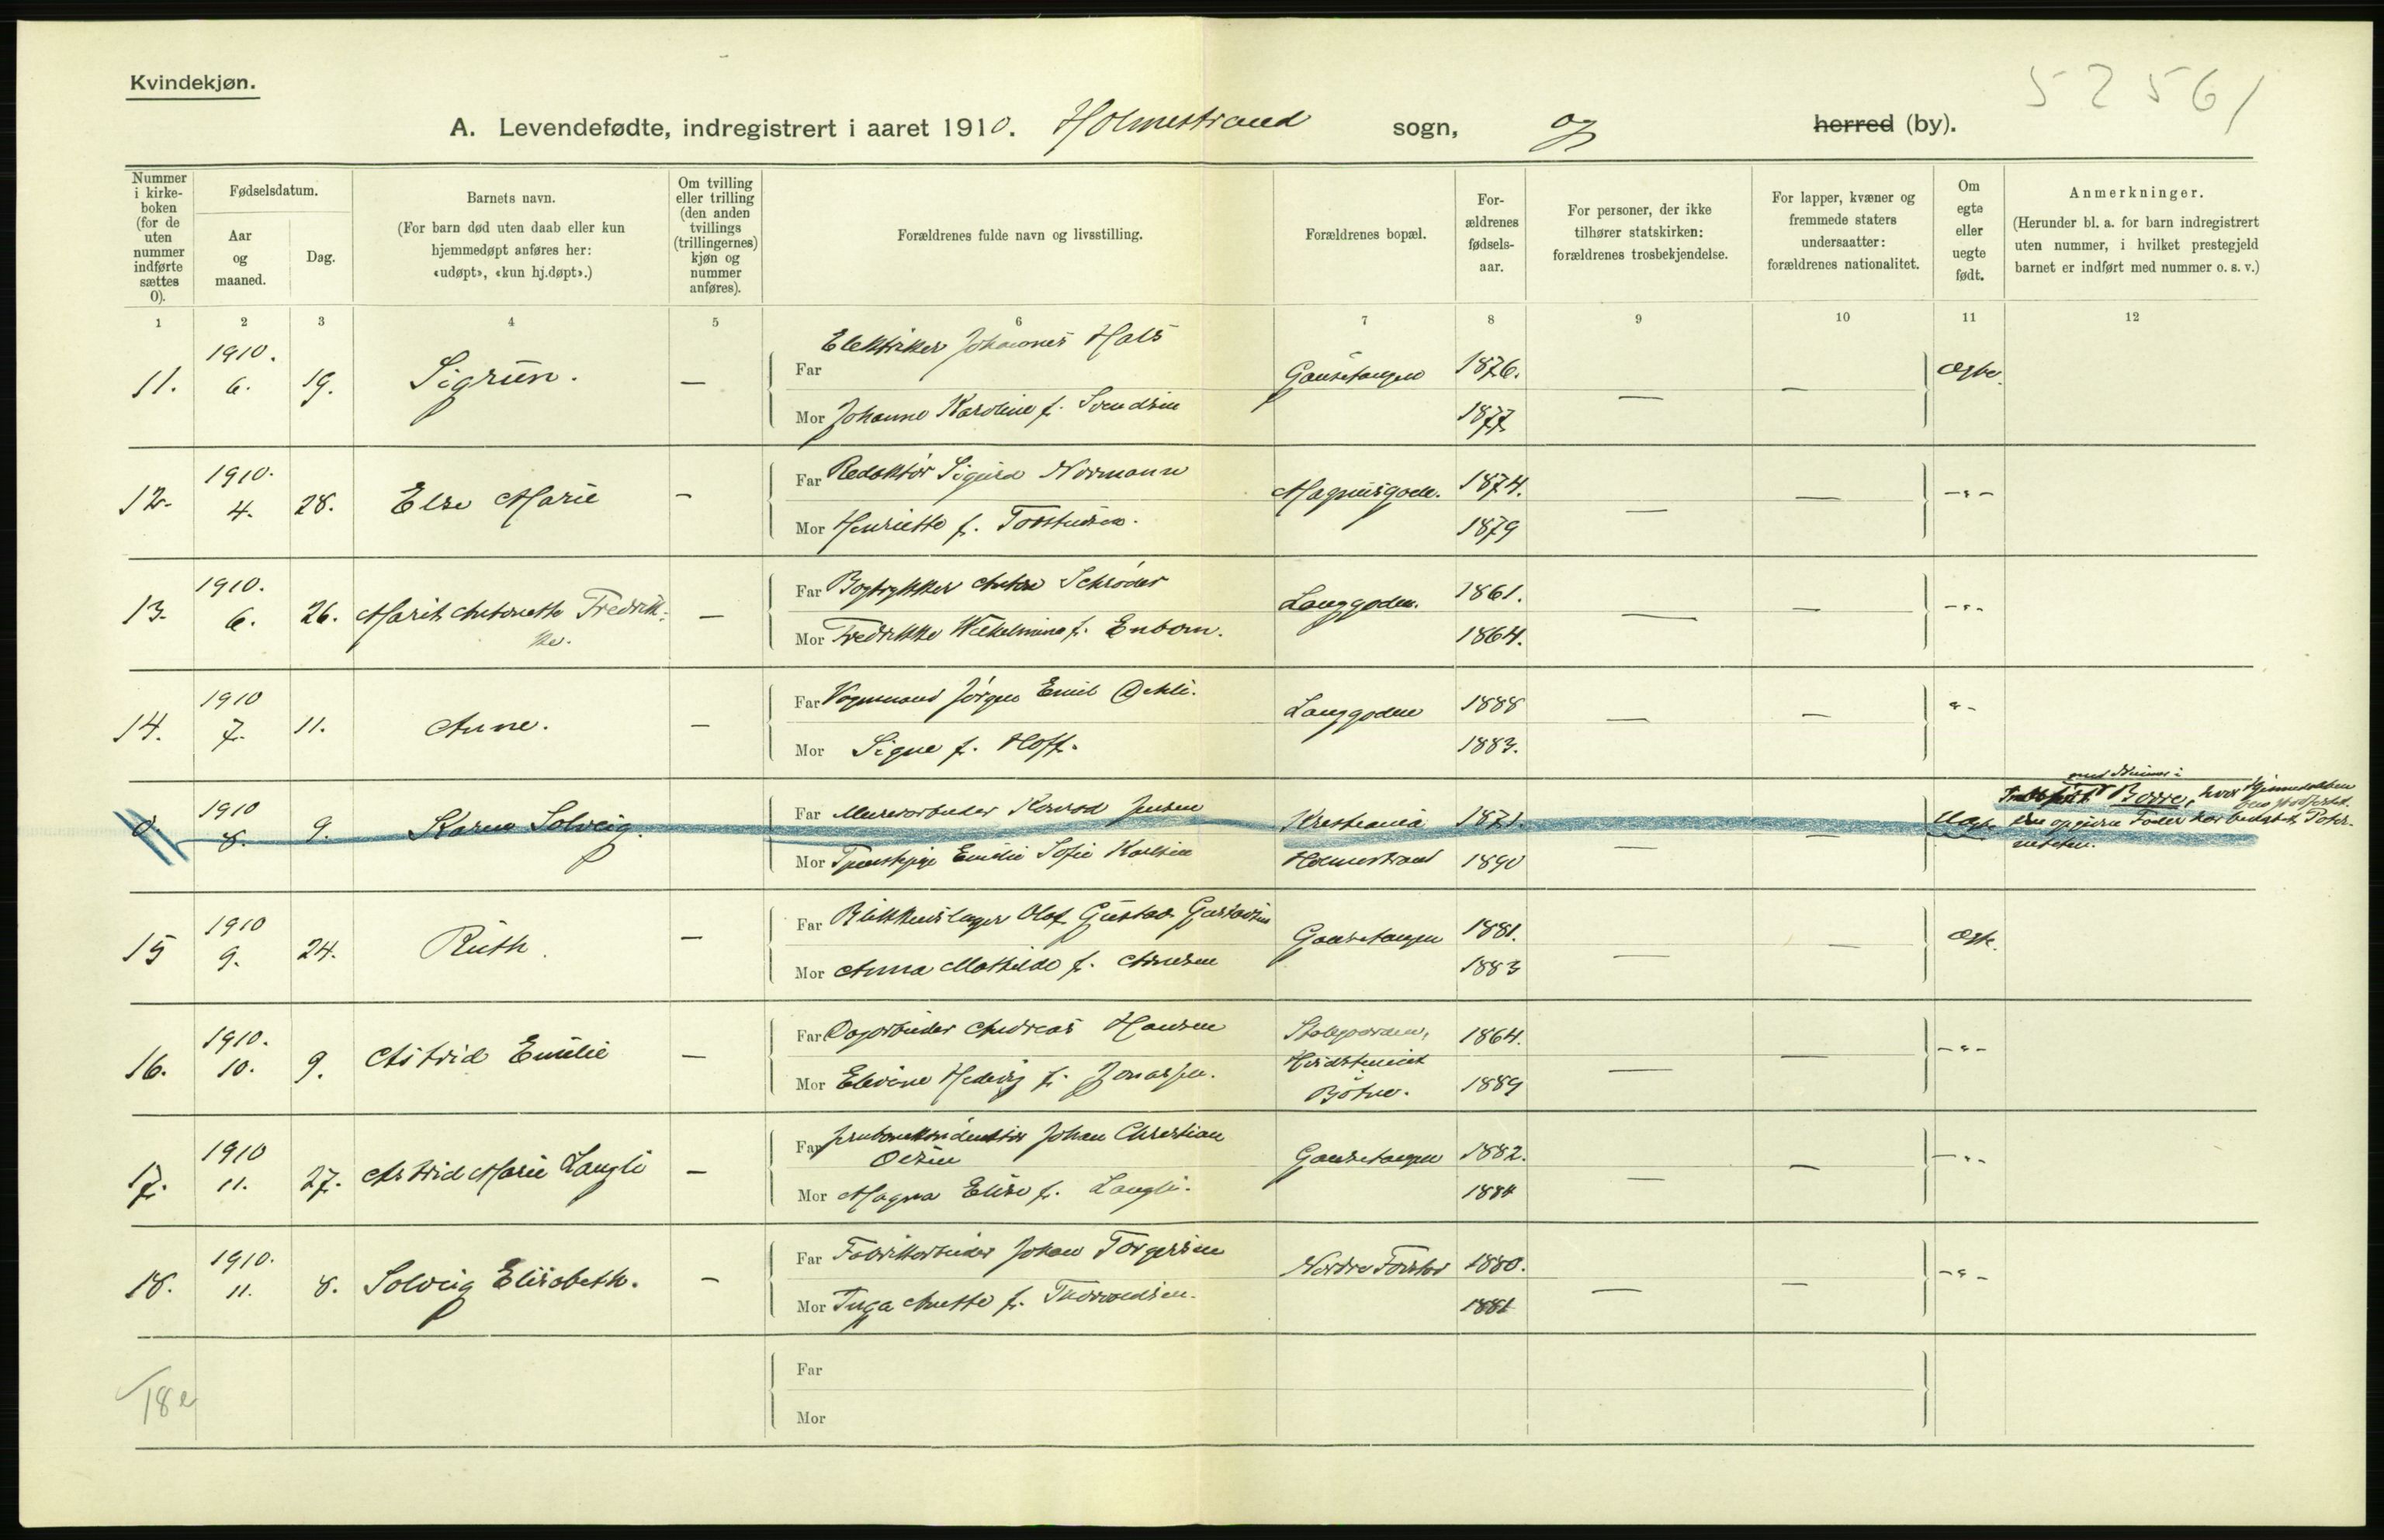 Kvindekjøn.
5 2 5 6 1
A. Levendefødte, indregistrert i aaret 1910. Holmestrand sogn, og herred (by).
Nummer i kirkeboken (for de uten nummer indførte sættes 0).
Fødselsdatum.
Aar og maaned.
Dag.
Barnets navn.
(For barn død uten daab eller kun hjemmedøpt anføres her: «udøpt», «kun hj.døpt».)
Om tvilling eller trilling (den anden tvillings (trillingernes) kjøn og nummer anføres).
Forældrenes fulde navn og livsstilling.
Forældrenes bopæl.
For-ældrenes fødsels-aar.
For personer, der ikke tilhører statskirken: forældrenes trosbekjendelse.
For lapper, kvæner og fremmede staters undersaatter: forældrenes nationalitet.
Om egte eller uegte født.
Anmerkninger.
(Herunder bl. a. for barn indregistrert uten nummer, i hvilket prestegjeld barnet er indført med nummer o. s. v.)
1 2 3 4 5 6 7 8 9 10 11 12
11. 1910. 6. 19. Sigrun. —
Far Elektriker Johannes Hals Gausetangen 1876. — — Egte.
Mor Johanne Karoline f. Svendsen 1877
12. 1910. 4. 28. Else Marie —
Far Redaktör Sigurd Normann Magnusgaden. 1874. — — -"-
Mor Henriette f. Torstensen. 1879
13. 1910. 6. 26. Marit Antonette Fredrik-
ke. —
Far Bogtrykker Anton Schröder Langgaden. 1861. — — -"-
Mor Fredrikke Wilhelmine f. Enbom. 1864.
14. 1910 7. 11. Anne. —
Far Vognmand Jörgen Emil Oehli. Langgaden 1888 — — "-
Mor Signe f. Hoff. 1883.
0. 1910 8. 9. Karen Solveig.
Far Murerarbeider Konrad Jensen Kristiania 1871. — Uegte
Mor Tjenestepige Emilie Sofie Karlsen Holmestrand 1890 —
med Numer i
Borre, hvor
15 1910 9. 24. Ruth. —
Far Blikkenslager Olof Gustav Gustavsen Gausetangen 1881. — — Egte.
Mor Anna Mathilde f. Arnesen 1883
16. 1910. 10. 9. Astrid Emilie —
Far Dagarbeider Andreas Hansen 1864. — — -"-
Mor Elevine Hedvig f. Jonassen. Botne. 1889
17. 1910 11. 27. Astrid Marie Langli —
Far Johan Christian
Olsen Gausetangen 1882. — — -"-
Mor Magna Elise f. Langli. 1884
18. 1910. 11. 8. Solveig Elisabeth. —
Far Fabrikarbeider Johan Torgersen Nordre Forstad 1880. — — -"-
Mor Inga Anette f. Thorvaldsen. 1881
Far
18
Mor